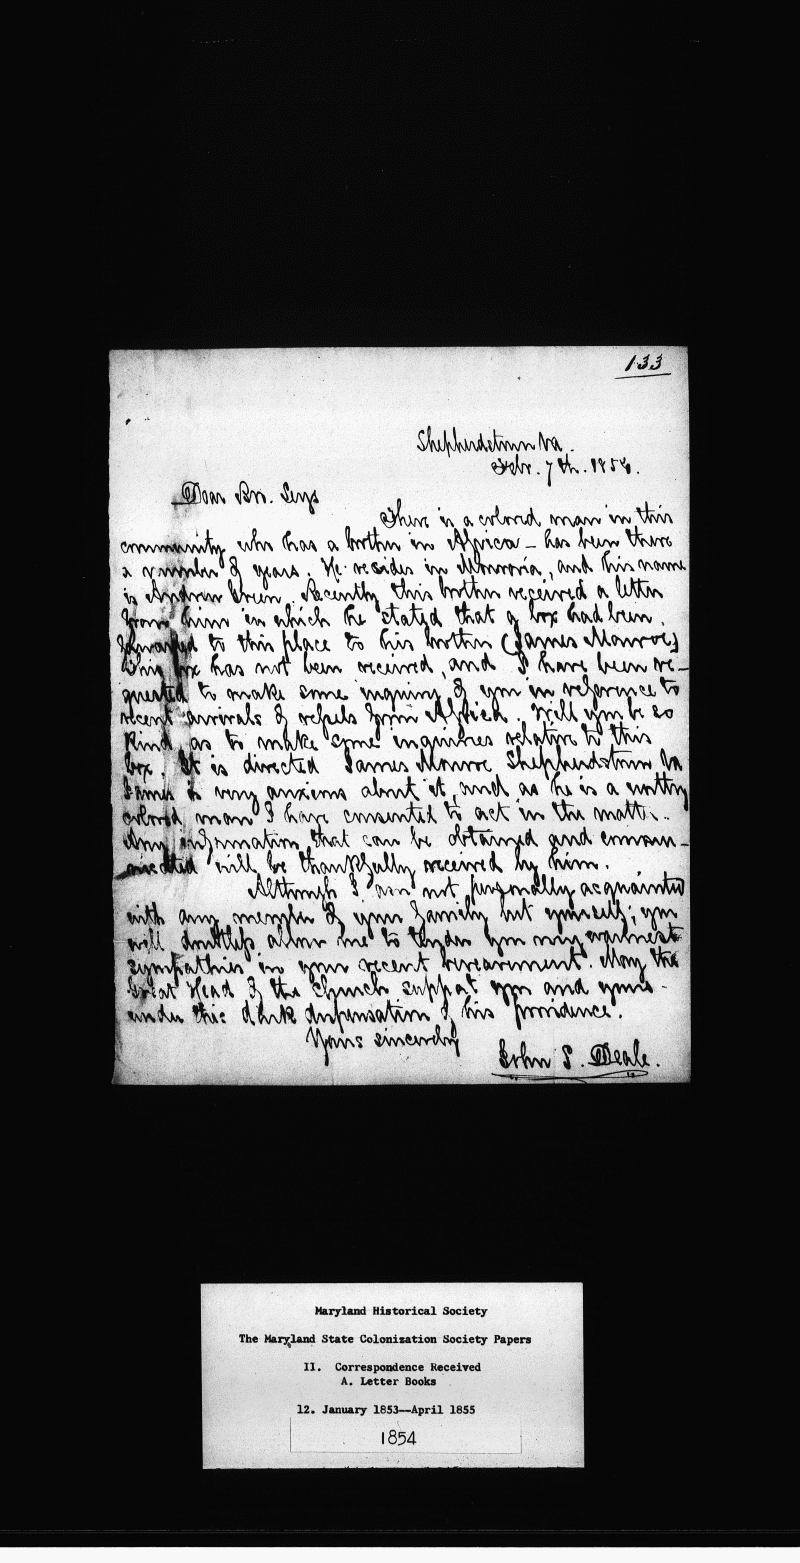 133
Shepherdstown Va.
Febr. 7th. 1854.
Dear Bro. Seys
There is a colored man in this
community who has a brother in Africa – has been there
a number of years. He resides in Monrovia, and his name
is Andrew Green. Recently this brother received a letter
from him in which he stated that a box had been
forwarded to this place to his brother (James Monroe)
This box has not been received, and I have been re-
quested to make some inquiry of you in reference to
recent arrivals of vessels from Africa. Will you be so
kind as to make some inquiries relative to this
box. It is directed James Monroe Shepherdstown Va
James is very anxious about it, and as he is a worthy
colored man I have consented to act in the matter.
Any information that can be obtained and commu-
nicated will be thankfully received by him.
Although I am not personally acquainted
with any member of your family but yourself, you
will doubtless allow me to tender you my earnest
sympathies in your recent bereavement. May the
Great Head of the Church support you and yours
under the dark dispensation of his providence.
Yours sincerely
John S. Deale.
Maryland Historical Society
The Maryland State Colonization Society Papers
II. Correspondence Received
A. Letter Books
12. January 1853--April 1855
1854